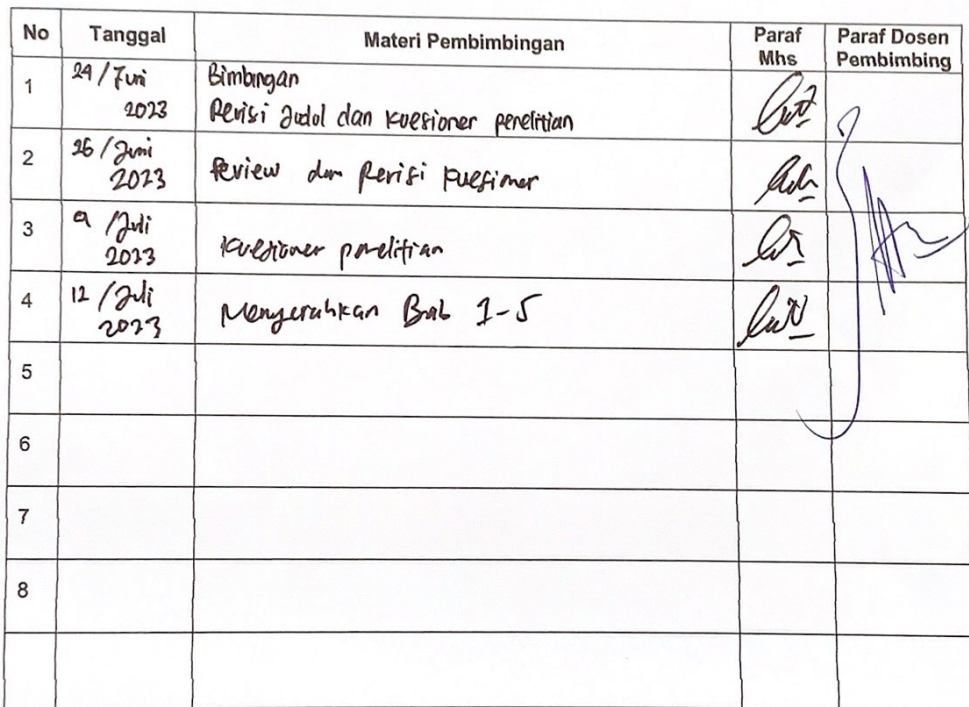 No Tanggal Materi Pembimbingan Paraf Mhs Paraf Dosen Pembimbing
1 24/Juni 2023 Bimbingan
Revisi Judul dan kuesioner penelitian
2 26/Juni 2023 Review dan Revisi kuesioner
3 9/Juli 2023 kuesioner penelitian
4 12/Juli 2023 Menyerahkan Bab 1-5
5
6
7
8